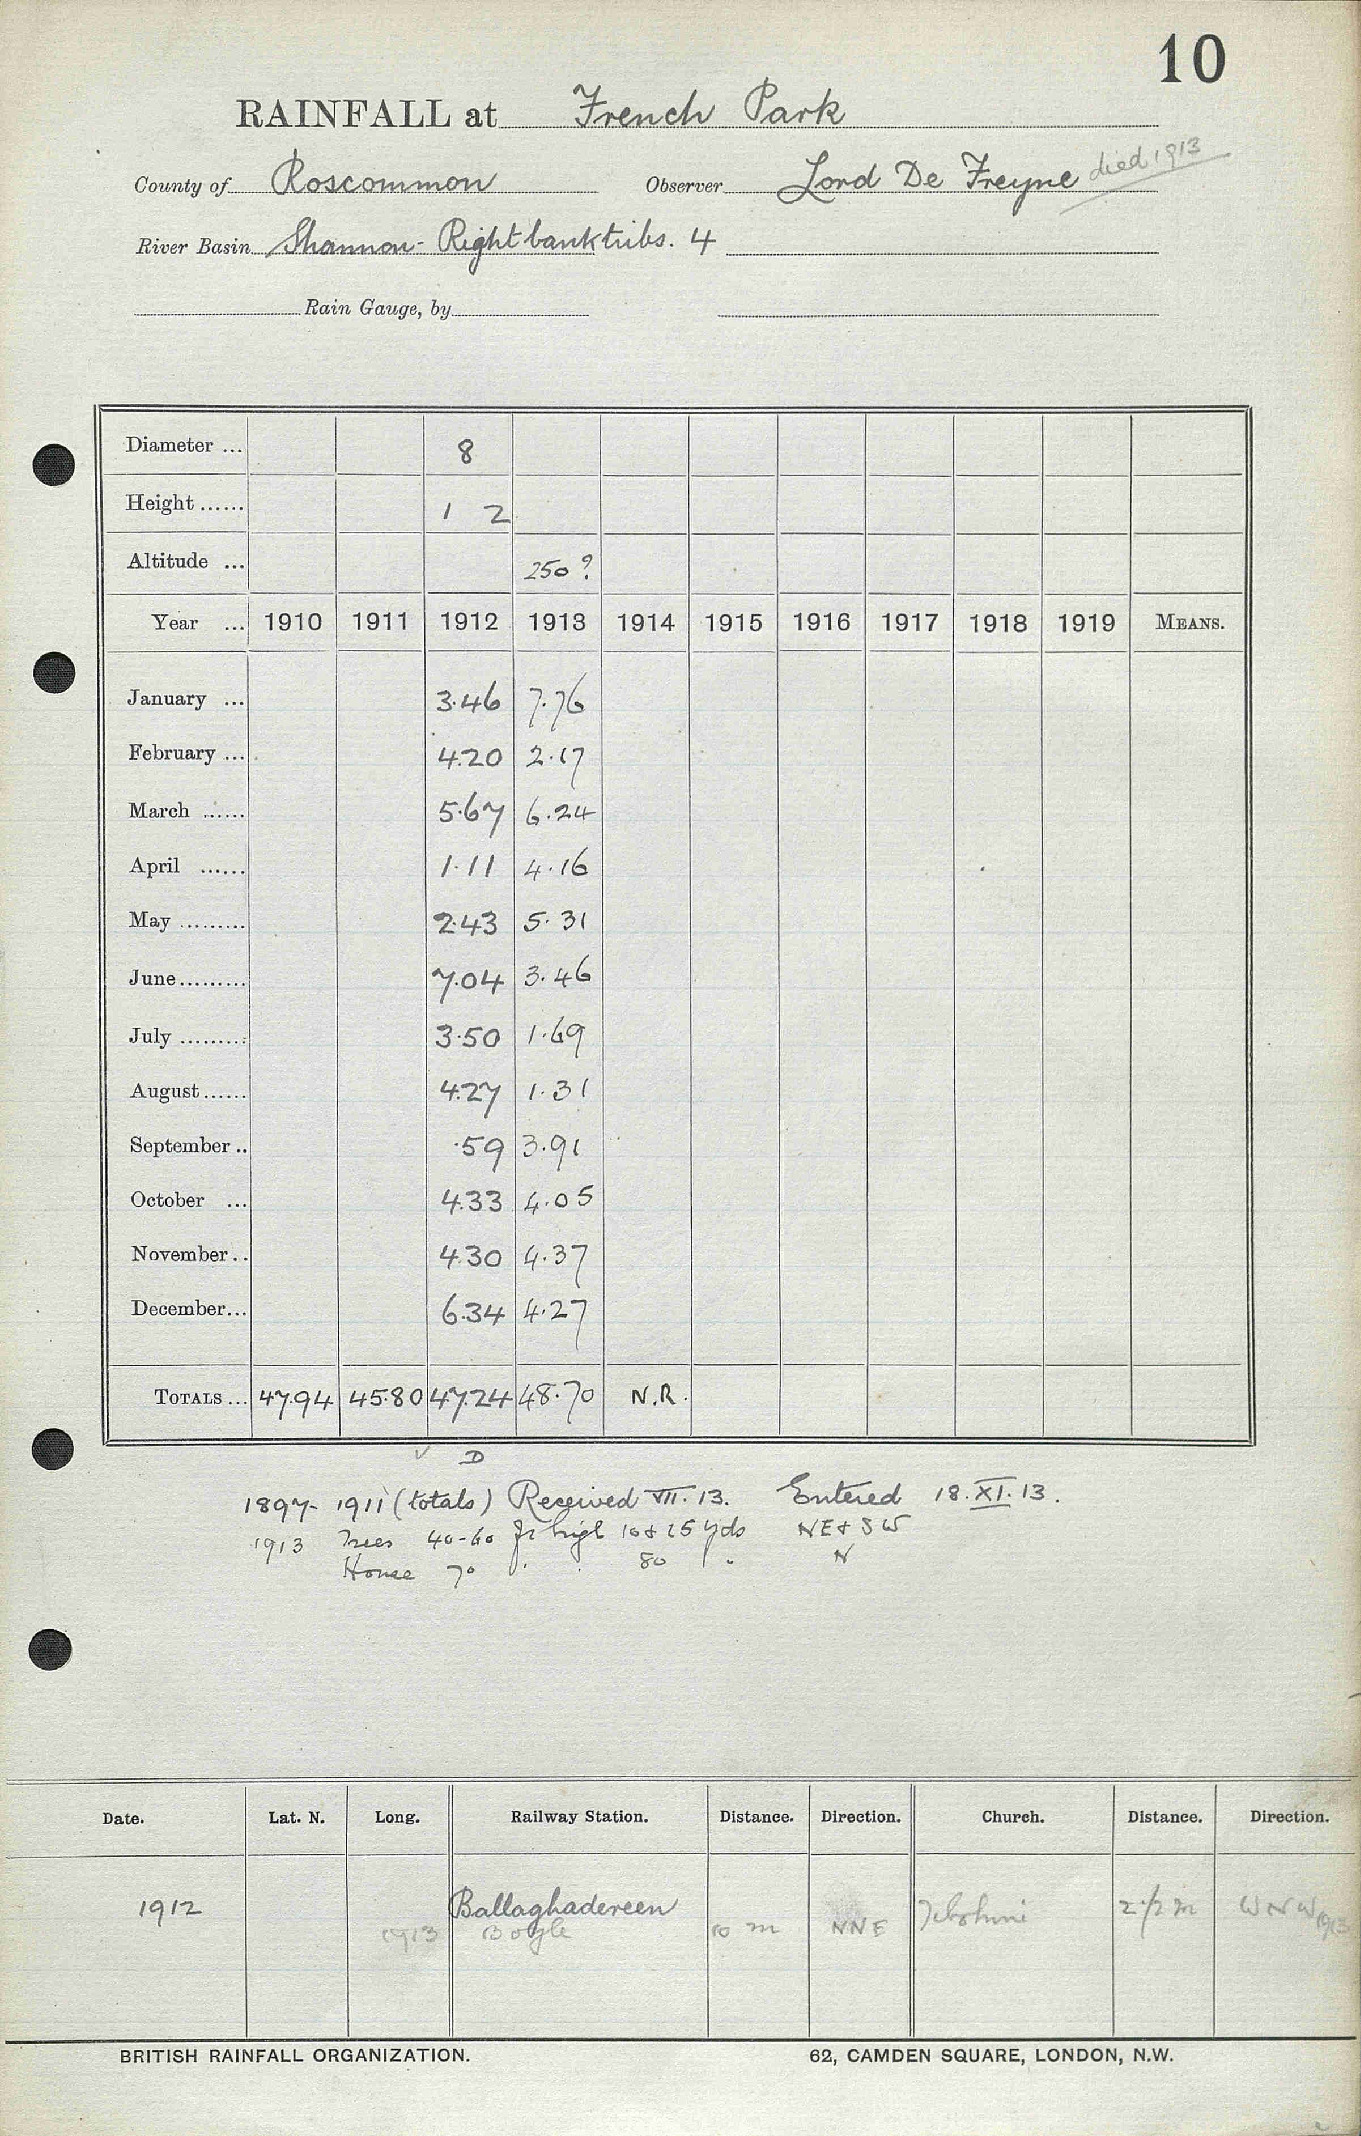 10
RAINFALL at French Park
County of Roscommon Observer Lord De Freyne died 1913
River Basin Shannon - Right bank tribs. 4
Rain Gauge, by
Diameter ... 8
Height ...... 1 2
Altitude ... 250 ?
Year ... 1910 1911 1912 1913 1914 1915 1916 1917 1918 1919 MEANS.
January ... 3.46 7.76
February ... 4.20 2.17
March ...... 5.67 6.24
April ...... 1.11 4.16
May ......... 2.43 5.31
June ......... 7.04 3.46
July ......... 3.50 1.69
August ...... 4.27 1.31
September .. .59 3.91
October ... 4.33 4.05
November .. 4.30 4.37
December ... 6.34 4.27
TOTALS ... 47.94 45.80 47.24 48.70 N.R.
✓ D
1897- 1911 (totals) Received VII. 13. Entered 18. XI. 13.
1913 Trees 40-60 ft high 10 & 25 yds NE & SW
House 70 " " 80 " N
Date. Lat. N. Long. Railway Station. Distance. Direction. Church. Distance. Direction.
1912 Ballaghadereen 2 1/2 m WNW 1913
1913 Boyle 10 m NNE
BRITISH RAINFALL ORGANIZATION. 62, CAMDEN SQUARE, LONDON, N.W.